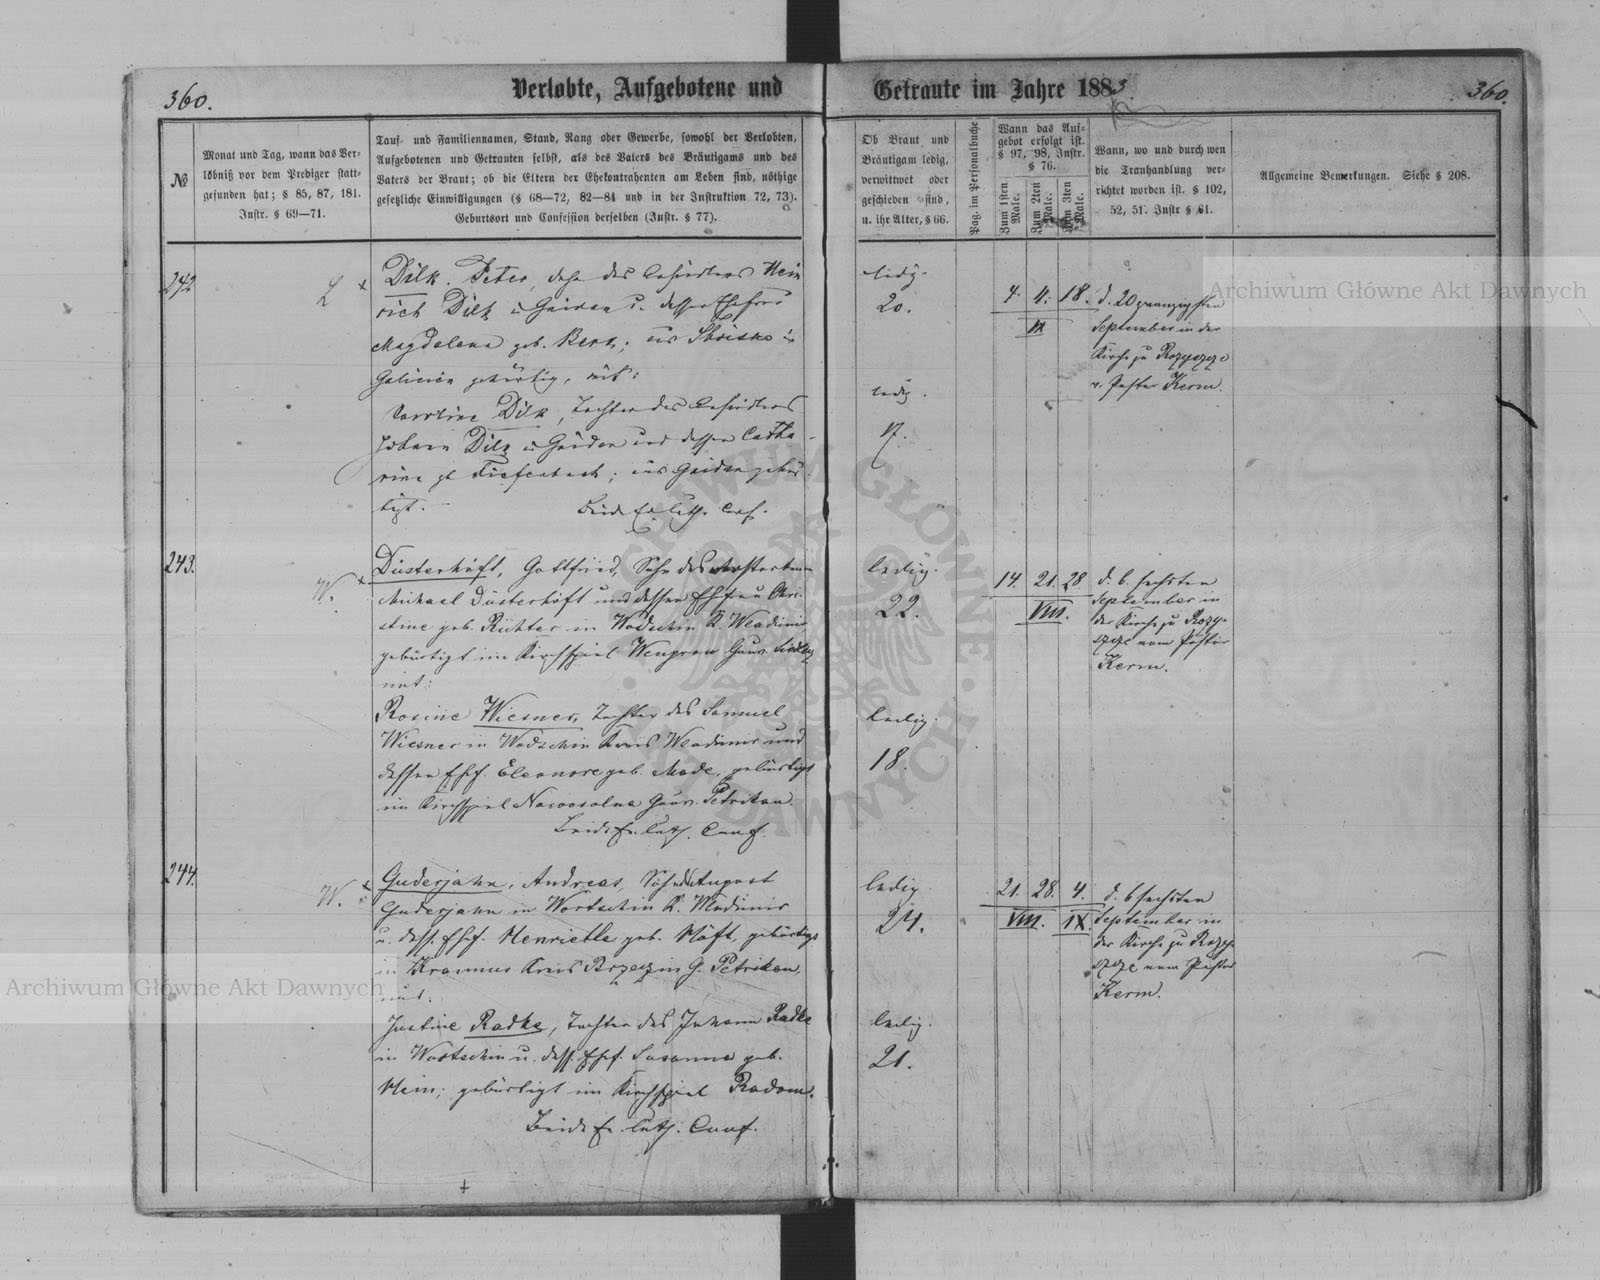 360.
Verlobte, Aufgebotene und
Getraute im Jahre 1883.
360.
№
Monat und Tag, wann das Ver-
löbniß vor dem Prediger statt-
gefunden hat; § 85, 87, 181.
Instr. § 69—71.
Tauf- und Familiennamen, Stand, Rang oder Gewerbe, sowohl der Verlobten,
Aufgebotenen und Getrauten selbst, als des Vaters des Bräutigams und des
Vaters der Braut; ob die Eltern der Ehekontrahenten am Leben sind, nöthige
gesetzliche Einwilligungen (§ 68—72, 82—84 und in der Instruktion 72, 73).
Geburtsort und Confession derselben (Instr. § 77).
Ob Braut und
Bräutigam ledig,
verwittwet oder
geschieden sind,
u. ihr Alter, § 66.
Pag. im Personalbuche
Wann das Auf-
gebot erfolgt ist.
§ 97, 98, Instr.
§ 76.
Zum 1sten Male.
Zum 2ten Male.
Zum 3ten Male.
Wann, wo und durch wen
die Trauhandlung ver-
richtet worden ist. § 102,
52, 51. Instr § 61.
Allgemeine Bemerkungen. Siehe § 208.
242
Dilk. Peter, des Hein
rich Dilk u. dessen Ehefrau
Magdalena geb. Berk;
Galicien gebürtig, mit:
Caroline Dilk, Tochter des
Johann Dilk in und dessen Catha-
rine gb Tiefenbach; gebür-
tigt.
Beide Ev. luth. Conf.
ledig.
20.
ledig.
17.
4. 11. 18.
IX
d. 20 zwanzigsten
September in der
Kirche zu Rozyszcze
v. Pastor Kerm.
243.
W.
Düsterhöft, Gottfried, Sohn des verstorbenen
Michael Düsterhöft und dessen Ehefrau Chri-
stine geb. Richter in Wodschin K. Wladimir
gebürtigt im Kirchspiel Wengrow Gouv. Siedlez
mit:
Rosine Wiesner, Tochter des Samuel
Wiesner in Wodschin Kreis Wladimir und
dessen Ehf. Eleonore geb. Mode, gebürtigt
im Kirchspiel Nowosolna Gouv. Petrikau.
Beide Ev. luth. Conf.
ledig.
22.
ledig.
18.
14. 21. 28
VIII.
d. 6. sechsten
September in
der Kirche zu Rozy-
szcze vom Pastor
Kerm.
244.
W.
Guderjahn, Andreas, Sohn des August
Guderjahn in Wortschin K. Wladimir
u. dess. Ehf. Henriette geb. Höft, gebürtigt
in Kreis Brzeziny G. Petrikau,
mit:
Justine Radke, Tochter des Johann Radke
in Wortschin u. dess. Ehf. Susanna geb.
Hein; gebürtigt im Kirchspiel Radom.
Beide Ev. luth. Conf.
ledig
24.
ledig.
21.
21. 28. 4.
VIII. IX.
d. 6 sechsten
September in
der Kirche zu Rozy-
szcze vom Pastor
Kerm.
Archiwum Główne Akt Dawnych
Archiwum Główne Akt Dawnych